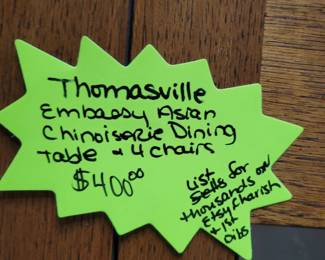 Thomasville
Embassy Asian
Chinoiserie Dining
Table & 4 Chairs
$400.00
List
Sells for
thousands on
Etsy Charish
& 1st
Dibs